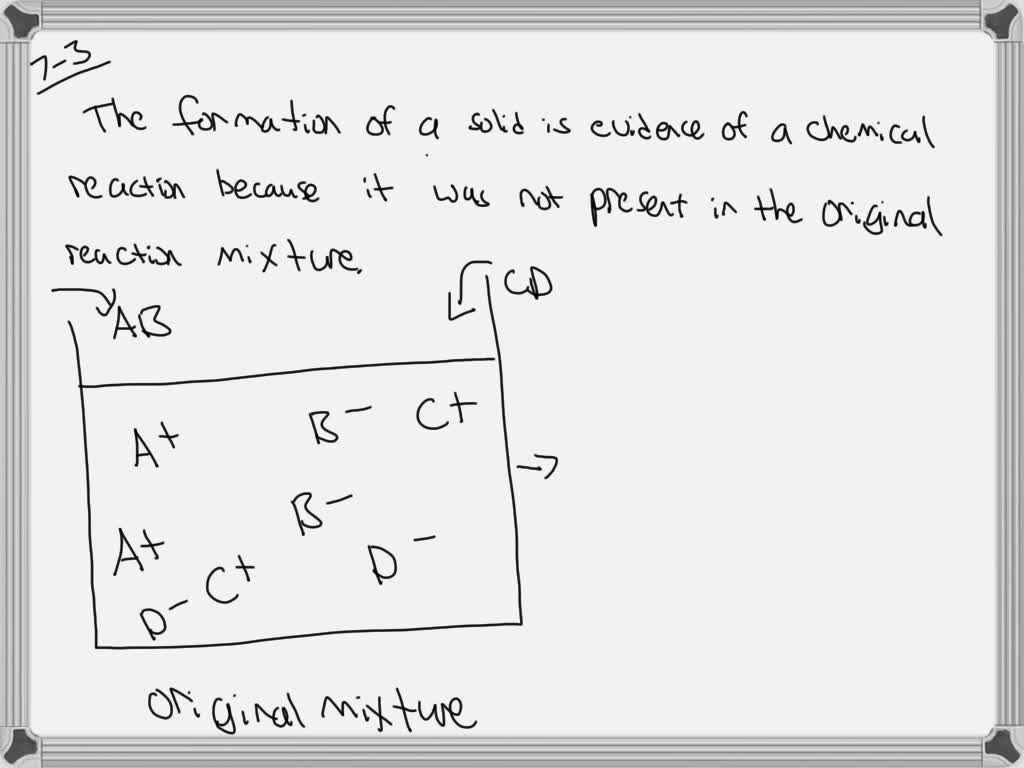 7-3
The formation of a solid is evidence of a chemical
reaction because it was not present in the original
reaction mixture.
AB
CD
A+ B- C+
B-
A+ C+ D-
D-
original mixture